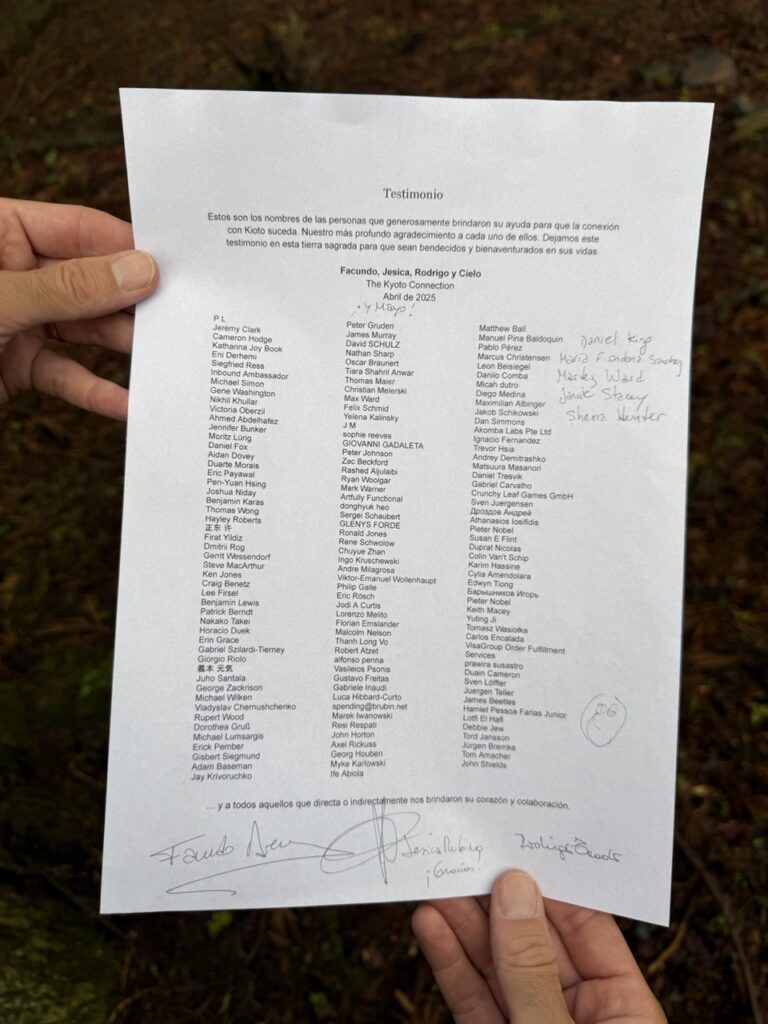 Testimonio
Estos son los nombres de las personas que generosamente brindaron su ayuda para que la conexión
con Kioto suceda. Nuestro más profundo agradecimiento a cada uno de ellos. Dejamos este
testimonio en esta tierra sagrada para que sean bendecidos y bienaventurados en sus vidas.
Facundo, Jesica, Rodrigo y Cielo
The Kyoto Connection
Abril de 2025
¡y Mayo!
P L
Jeremy Clark
Cameron Hodge
Katharina Joy Book
Eni Derhemi
Siegfried Ress
Inbound Ambassador
Michael Simon
Gene Washington
Nikhil Khullar
Victoria Oberzil
Ahmed Abdelhafez
Jennifer Bunker
Moritz Lürig
Daniel Fox
Aidan Dovey
Duarte Morais
Eric Payawal
Pen-Yuan Hsing
Joshua Niday
Benjamin Karas
Thomas Wong
Hayley Roberts
正东 许
Firat Yildiz
Dmitrii Rog
Gerrit Wessendorf
Steve MacArthur
Ken Jones
Craig Benetz
Lee Firsel
Benjamin Lewis
Patrick Berndt
Nakako Takei
Horacio Duek
Erin Grace
Gabriel Szilardi-Tierney
Giorgio Riolo
義本 元気
Juho Santala
George Zackrison
Michael Wilken
Vladyslav Chernushchenko
Rupert Wood
Dorothea Gruß
Michael Lumsargis
Erick Pember
Gisbert Siegmund
Adam Baseman
Jay Krivoruchko
Peter Gruden
James Murray
David SCHULZ
Nathan Sharp
Oscar Braunert
Tiara Shahril Anwar
Thomas Maier
Christian Melerski
Max Ward
Felix Schmid
Yelena Kalinsky
J M
sophie reeves
GIOVANNI GADALETA
Peter Johnson
Zac Beckford
Rashed Aljulaibi
Ryan Woolgar
Mark Warner
Artfully Functional
donghyuk heo
Sergei Schaubert
GLENYS FORDE
Ronald Jones
Rene Schwolow
Chuyue Zhan
Ingo Kruschewski
Andre Milagrosa
Viktor-Emanuel Wollenhaupt
Philip Galle
Eric Rösch
Jodi A Curtis
Lorenzo Melito
Florian Emslander
Malcolm Nelson
Thanh Long Vo
Robert Atzet
alfonso penna
Vasileios Psonis
Gustavo Freitas
Gabriele Inaudi
Luca Hibbard-Curto
spending@brubin.net
Marek Iwanowski
Resi Respati
John Horton
Axel Rickuss
Georg Houben
Myke Karlowski
Ife Abiola
Matthew Ball
Manuel Pina Baldoquin
Pablo Pérez
Marcus Christensen
Leon Beisiegel
Danilo Comba
Micah dutro
Diego Medina
Maximilian Albinger
Jakob Schikowski
Dan Simmons
Akomba Labs Pte Ltd
Ignacio Fernandez
Trevor Hsia
Andrey Demitrashko
Matsuura Masanori
Daniel Tresvik
Gabriel Carvalho
Crunchy Leaf Games GmbH
Sven Juergensen
Дроздов Андрей
Athanasios Iosifidis
Pieter Nobel
Susan E Flint
Duprat Nicolas
Colin Van't Schip
Karim Hassine
Cylia Amendolara
Edwyn Tiong
Барышников Игорь
Pieter Nobel
Keith Macey
Yuting Ji
Tomasz Wasiolka
Carlos Encalada
VisaGroup Order Fulfillment
Services
prawira susastro
Duain Cameron
Sven Löffler
Juergen Teller
James Beetles
Hamlet Pessoa Farias Junior
Lotfi El Hafi
Debbie Jew
Tord Jansson
Jürgen Bremke
Tom Amacher
John Shields
Daniel King
Ward
Stacey
Shena Hunter
... y a todos aquellos que directa o indirectamente nos brindaron su corazón y colaboración.
Facundo
Jesica
¡Gracias!
Rodrigo